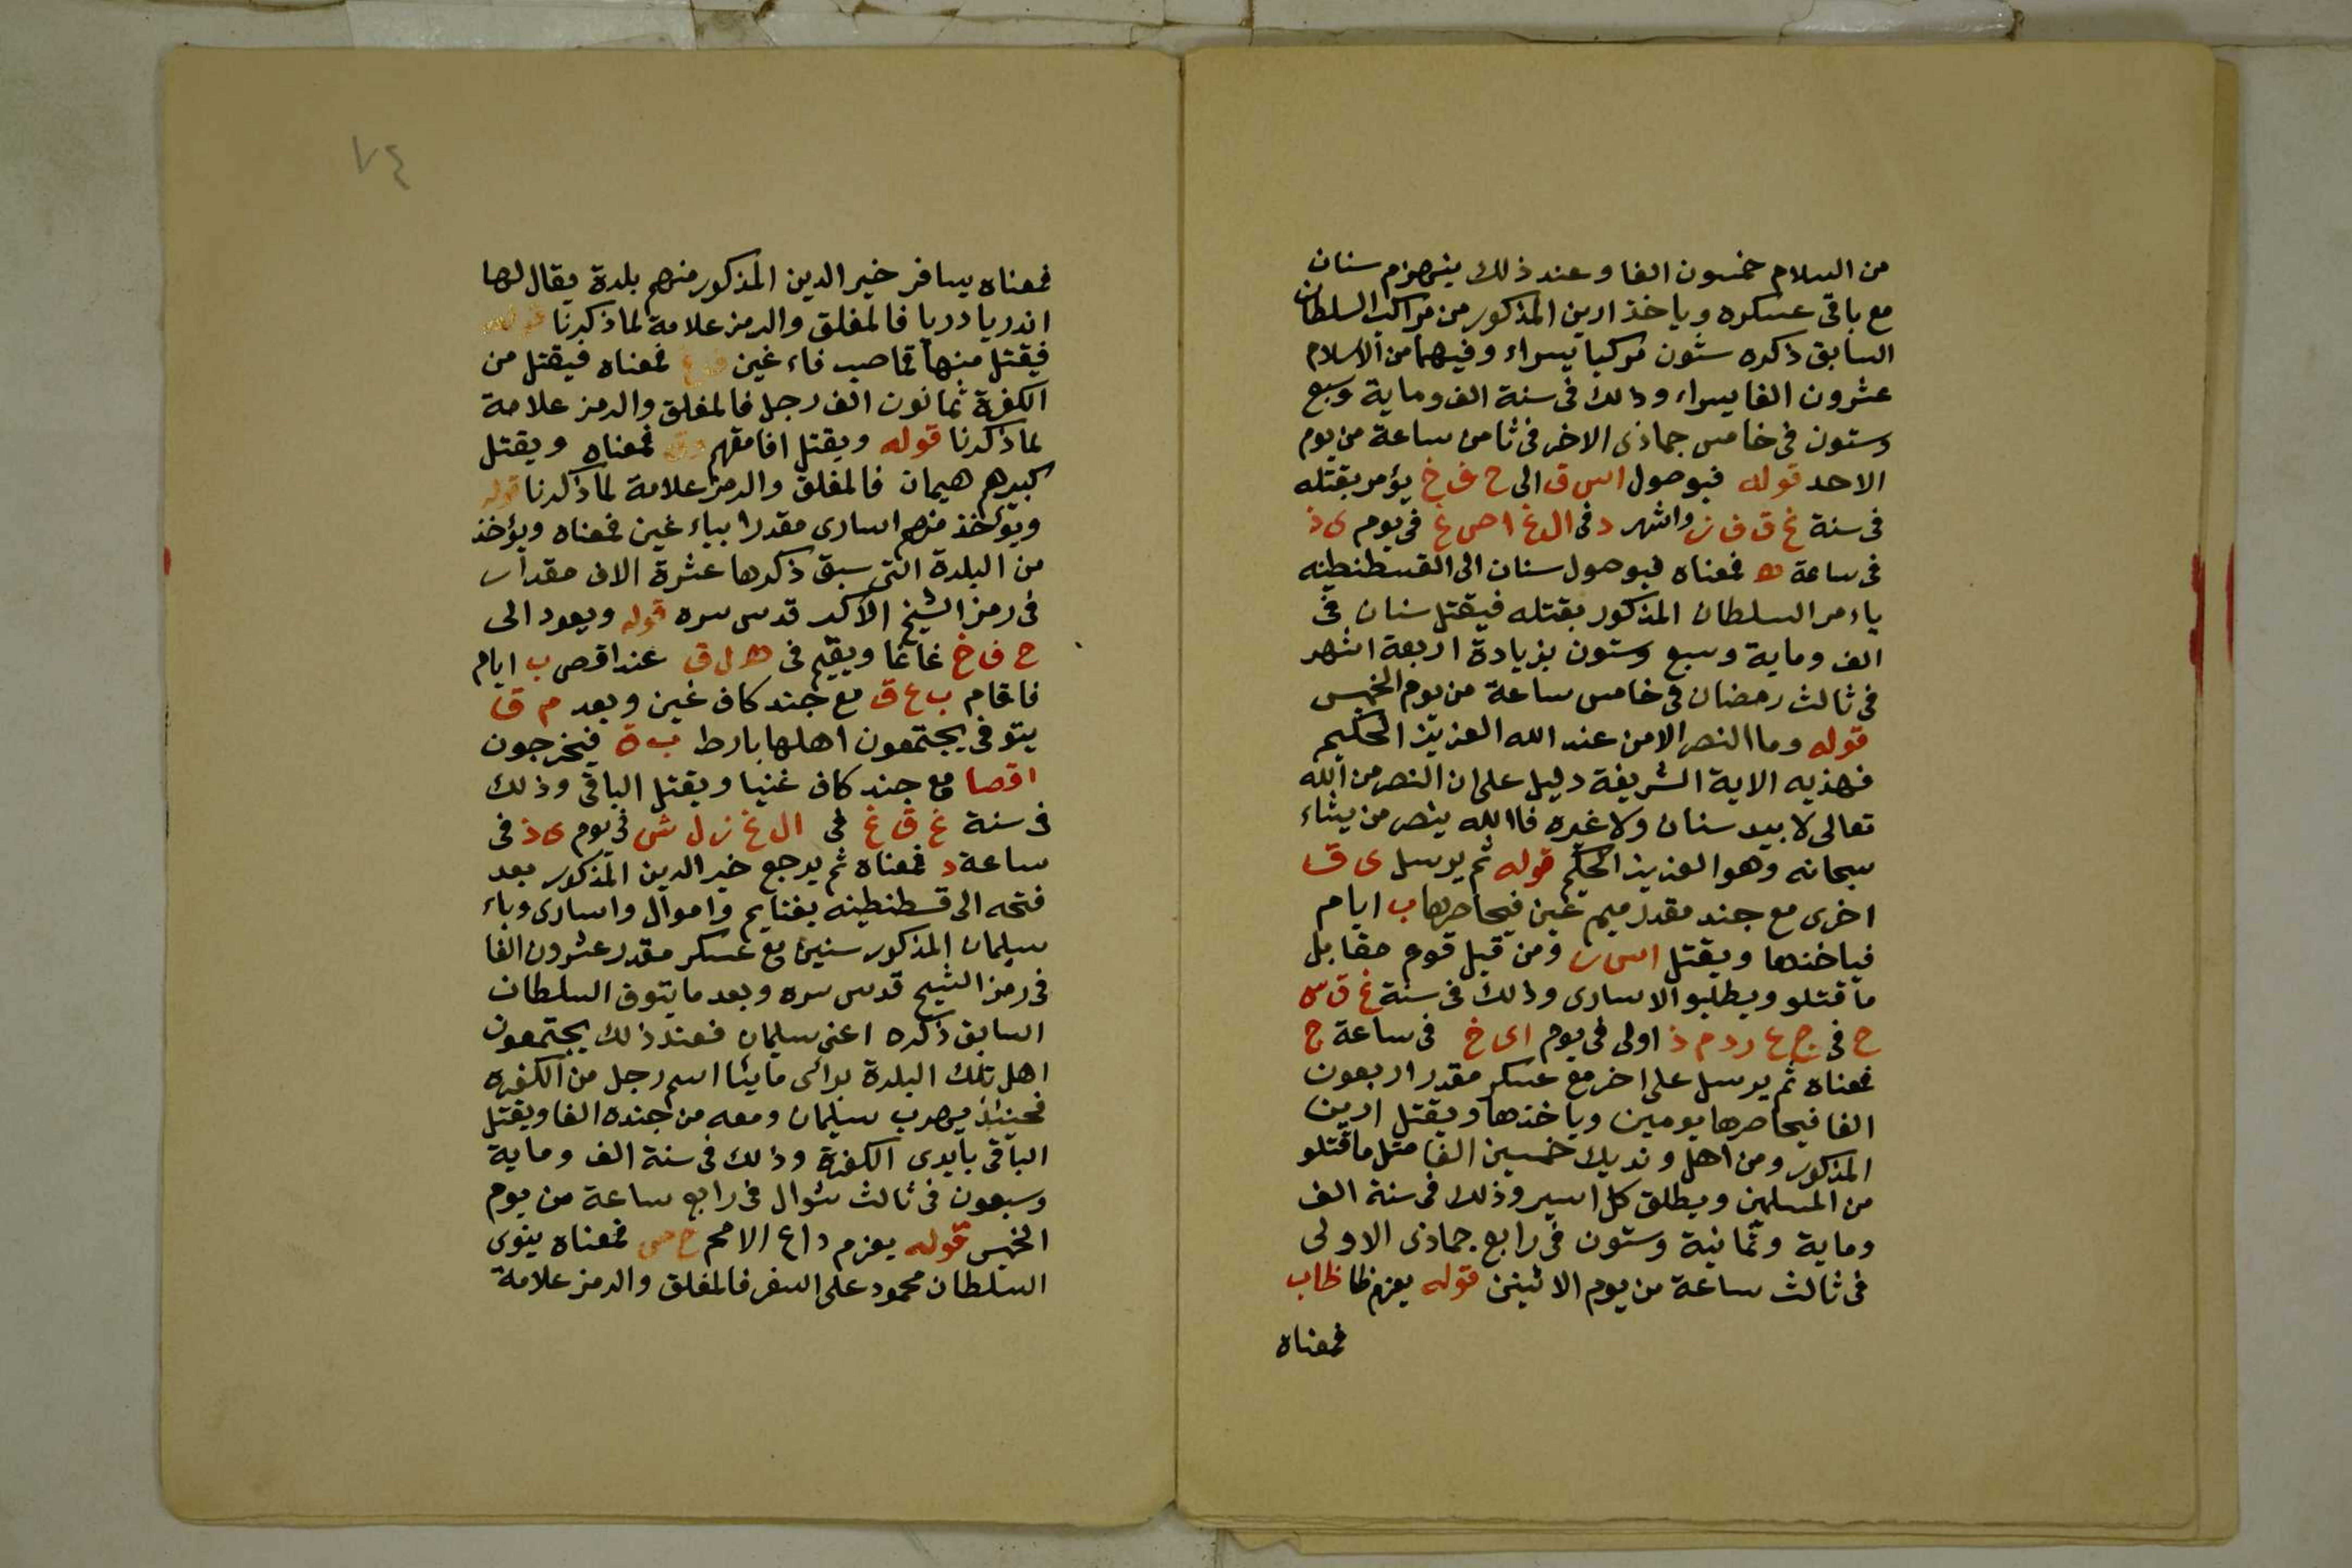 من السلام خمسون الفا وعند ذلك ينهزم سنان
مع باقى عسكره وياخذ ارين المذكور من مراكب السلطان
السابق ذكره ستون مركبا يسراء وفيهما من الاسلام
عشرون الفا يسراء وذلك فى سنة الف وماية وسبع
وستون فى خامس جماذى الاخر فى ثامن ساعة من يوم
الاحد قوله فبوصول اس ق الى ح ف خ يؤمر بقتله
فى سنة غ ق ف ز واشهر د فى ال غ ا ص غ فى يوم ى ذ
فى ساعة ه فمعناه فبوصول سنان الى القسطنطينه
ياءمر السلطان المذكور بقتله فيقتل سنان فى
الف وماية وسبع وستون بزيادة اربعة اشهر
فى ثالث رمضان فى خامس ساعة من يوم الخميس
قوله وما النصر الا من عند الله العزيز الحكيم
فهذيه الاية الشريفة دليل على ان النصر من الله
تعالى لا بيد سنان ولا غيره فا الله ينصر من يشاء
سبحانه وهو العزيز الحكيم قوله ثم يرسل ى ق
اخرى مع جند مقدر ميم غين فيحاصرها ب ايام
فياخذها ويقتل اس ر ومن قبل قوم مقابل
ما قتلو ويطلبو الاسارى وذلك فى سنة غ ق س
ح فى ج ع ر د م ذ اولى فى يوم اى خ فى ساعة ج
فمعناه ثم يرسل على اخر مع عسكر مقدر اربعون
الفا فيحاصرها يومين وياخذها ويقتل ارين
المذكور ومن اهل ونديك خمسين الفا مثل ما قتلو
من المسلمين ويطلق كل اسير وذلك فى سنة الف
وماية وثمانية وستون فى رابع جماذى الاولى
فى ثالث ساعة من يوم الاثينن قوله يعزم ظا ظاب
فمعناه
٧٤
فمعناه يسافر خير الدين المذكور منهم بلدة يقال لها
اندريا دريا فالمغلق والرمز علامة لما ذكرنا قوله
فيقتل منها قماصب فاء غين ف غ فمعناه فيقتل من
الكفرة ثمانون الف رجل فالمغلق والرمز علامة
لما ذكرنا قوله ويقتل افامقهم فمعناه ويقتل
كبيرهم هيمان فالمغلق والرمز علامة لما ذكرنا قوله
ويؤخذ منهم اسارى مقدرا بباء غين فمعناه ويؤخذ
من البلدة التى سبق ذكرها عشرة الاف مقدار
فى رمز الشيخ الاكبر قدس سره قوله ويعود الى
ح ف خ غانما ويقيم فى ه ل ق عند اقص ب ايام
فاقام ب ع ق مع جند كاف غين وبعد م ق
يتوفى يجتمعون اهلها بارط ب ة فيخرجون
اقصا مع جند كاف غنيا ويقتل الباقى وذلك
فى سنة غ ق غ فى ال غ ز ل ش فى يوم ى ذ فى
ساعة د فمعناه ثم يرجع خير الدين المذكور بعد
فتحه الى قسطنطينه بغنايم واموال واسارى وباء
سيلمان المذكور سنين مع عسكر مقدر عشرون الفا
فى رمز الشيخ قدس سره وبعد ما يتوف السلطان
السابق ذكره اعنى سليمان فعند ذلك يجتمعون
اهل تلك البلدة براى مايئا اسم رجل من الكفره
فحينئذ يهرب سيلمان ومعه من جنده الفا ويقتل
الباقى بايدى الكفرة وذلك فى سنة الف وماية
وسبعون فى ثالث شوال فى رابع ساعة من يوم
الخميس قوله يعزم داع الا محم ح مى فمعناه ينوى
السلطان محمود على السفر فالمغلق والرمز علامة